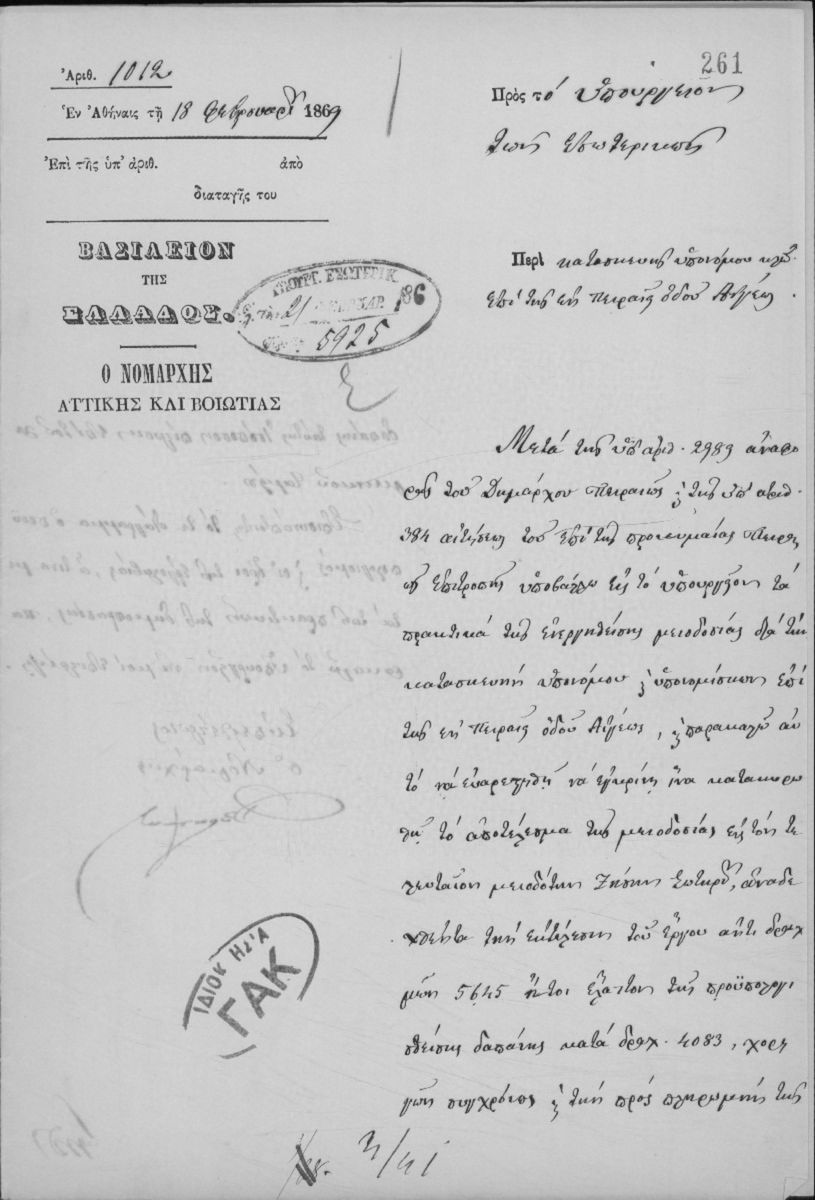 261
Ἀριθ. 1012
Ἐν Ἀθήναις τῇ 18 Φεβρουαρ 1869
Ἐπὶ τῆς ὑπ' ἀριθ. ἀπὸ
διαταγῆς του
ΒΑΣΙΛΕΙΟΝ
ΤΗΣ
ΕΛΛΑΔΟΣ.
Ο ΝΟΜΑΡΧΗΣ
ΑΤΤΙΚΗΣ ΚΑΙ ΒΟΙΩΤΙΑΣ
ΥΠΟΥΡΓ. ΕΣΩΤΕΡΙΚ
21 186
5925
Πρὸς τὸ Ὑπουργεῖον
τῶν Ἐσωτερικῶν
Περὶ κατασκευῆς ὑπονόμου κλπ.
ἐπὶ τῆς ἐν Πειραιεῖ ὁδοῦ Αἰγέως.
Μετὰ τῆς ὑπ' ἀριθ. 2989 ἀναφο
ρᾶς τοῦ Δημάρχου Πειραιῶς καὶ τῆς ὑπ' ἀριθ.
384 αἰτήσεως τοῦ ἐπὶ τῆς προκυμαίας Πειραι
ῶς Ἐπιτροπῆς ὑποβάλλω εἰς τὸ Ὑπουργεῖον τὰ
πρακτικὰ τῆς ἐνεργηθείσης μειοδοσίας διὰ τὴν
κατασκευὴν ὑπονόμου καὶ ὑπονομίσκων ἐπὶ
τῆς ἐν Πειραιεῖ ὁδοῦ Αἰγέως, καὶ παρακαλῶ αὐ
τὸ νὰ εὐαρεστηθῇ νὰ ἐγκρίνῃ ἵνα κατακυρω
θῇ τὸ ἀποτέλεσμα τῆς μειοδοσίας εἰς τὸν τε
λευταῖον μειοδότην Ζήσην Σωτηρίου, ἀναδε
χθέντα τὴν ἐκτέλεσιν τοῦ ἔργου ἀντὶ δραχ
μῶν 5645 ἤτοι ἔλαττον τῆς προϋπολογι
σθείσης δαπάνης κατὰ δραχ. 4083, χορη
γῶν συγχρόνως καὶ τὴν πρὸς πληρωμὴν τῆς
ΙΔΙΟΚΤΗΣΙΑ
ΓΑΚ